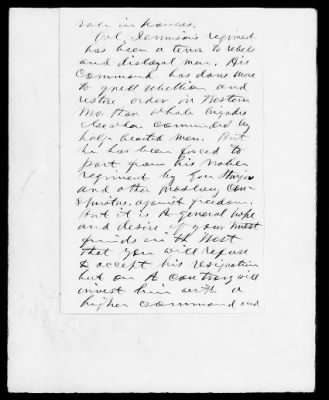 rate in Kansas.
Col. Jennison's regiment
has been a terror to rebels
and disloyal men. His
Command has done more
to quell rebellion and
restore order in Western
Mo than whole brigades
elsewhere commanded by
half hearted men. But
he has been forced to
part from his noble
regiment by Gen Sturgis
and other proslavery Con
spirators, against freedom.
But it is the general hope
and desire of your truest
friends in the West
that you will refuse
to accept his resignation
but on the contrary will
invest him with a
higher command and